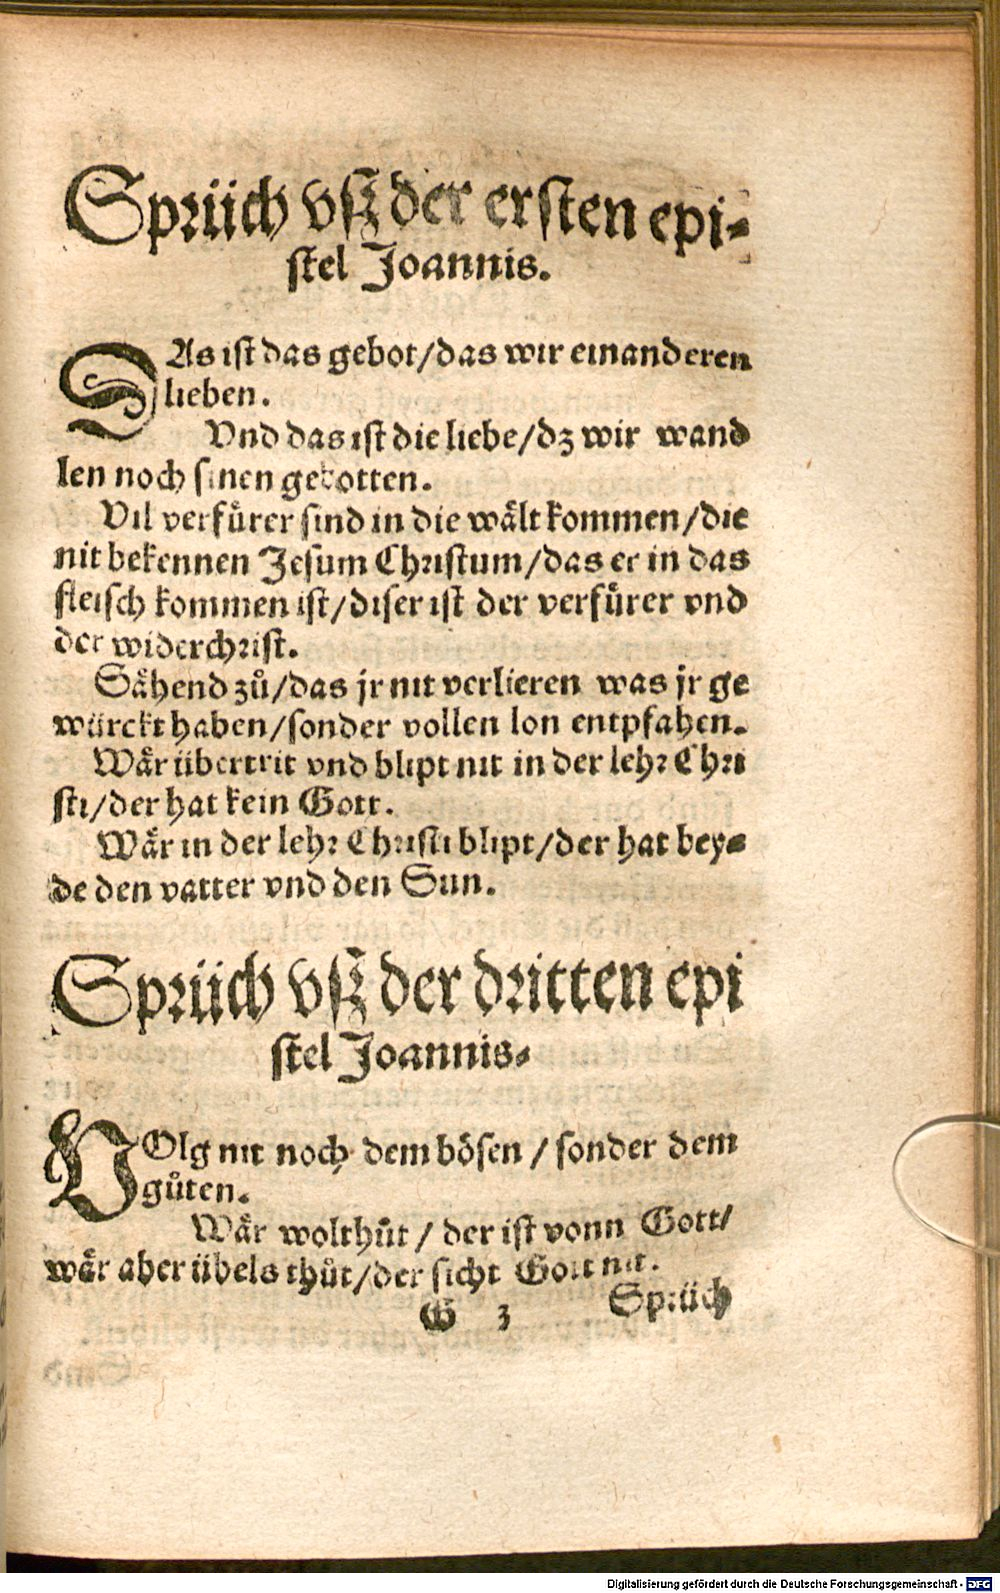 Sprüch vſz der erſten epi-
ſtel Joannis.
DAs iſt das gebot/das wir einanderen
lieben.
Vnd das iſt die liebe/dz wir wand
len noch ſinen gebotten.
Vil verfůrer ſind in die wålt kommen/die
nit bekennen Jeſum Chriſtum/das er in das
fleiſch kommen iſt/diſer iſt der verfůrer vnd
der widerchriſt.
Såhend zů/das jr nit verlieren was jr ge
würckt haben/ſonder vollen lon entpfahen.
Wår übertrit vnd blipt nit in der lehr Chri
ſti/der hat kein Gott.
Wår in der lehr Chriſti blipt/der hat bey-
de den vatter vnd den Sun.
Sprüch vſz der dritten epi
ſtel Joannis.
VOlg nit noch dem böſen / ſonder dem
gůten.
Wår wolthůt / der iſt vonn Gott/
wår aber übels thůt/der ſicht Gott nit.
G 3 Sprüch
Digitalisierung gefördert durch die Deutsche Forschungsgemeinschaft - DFG